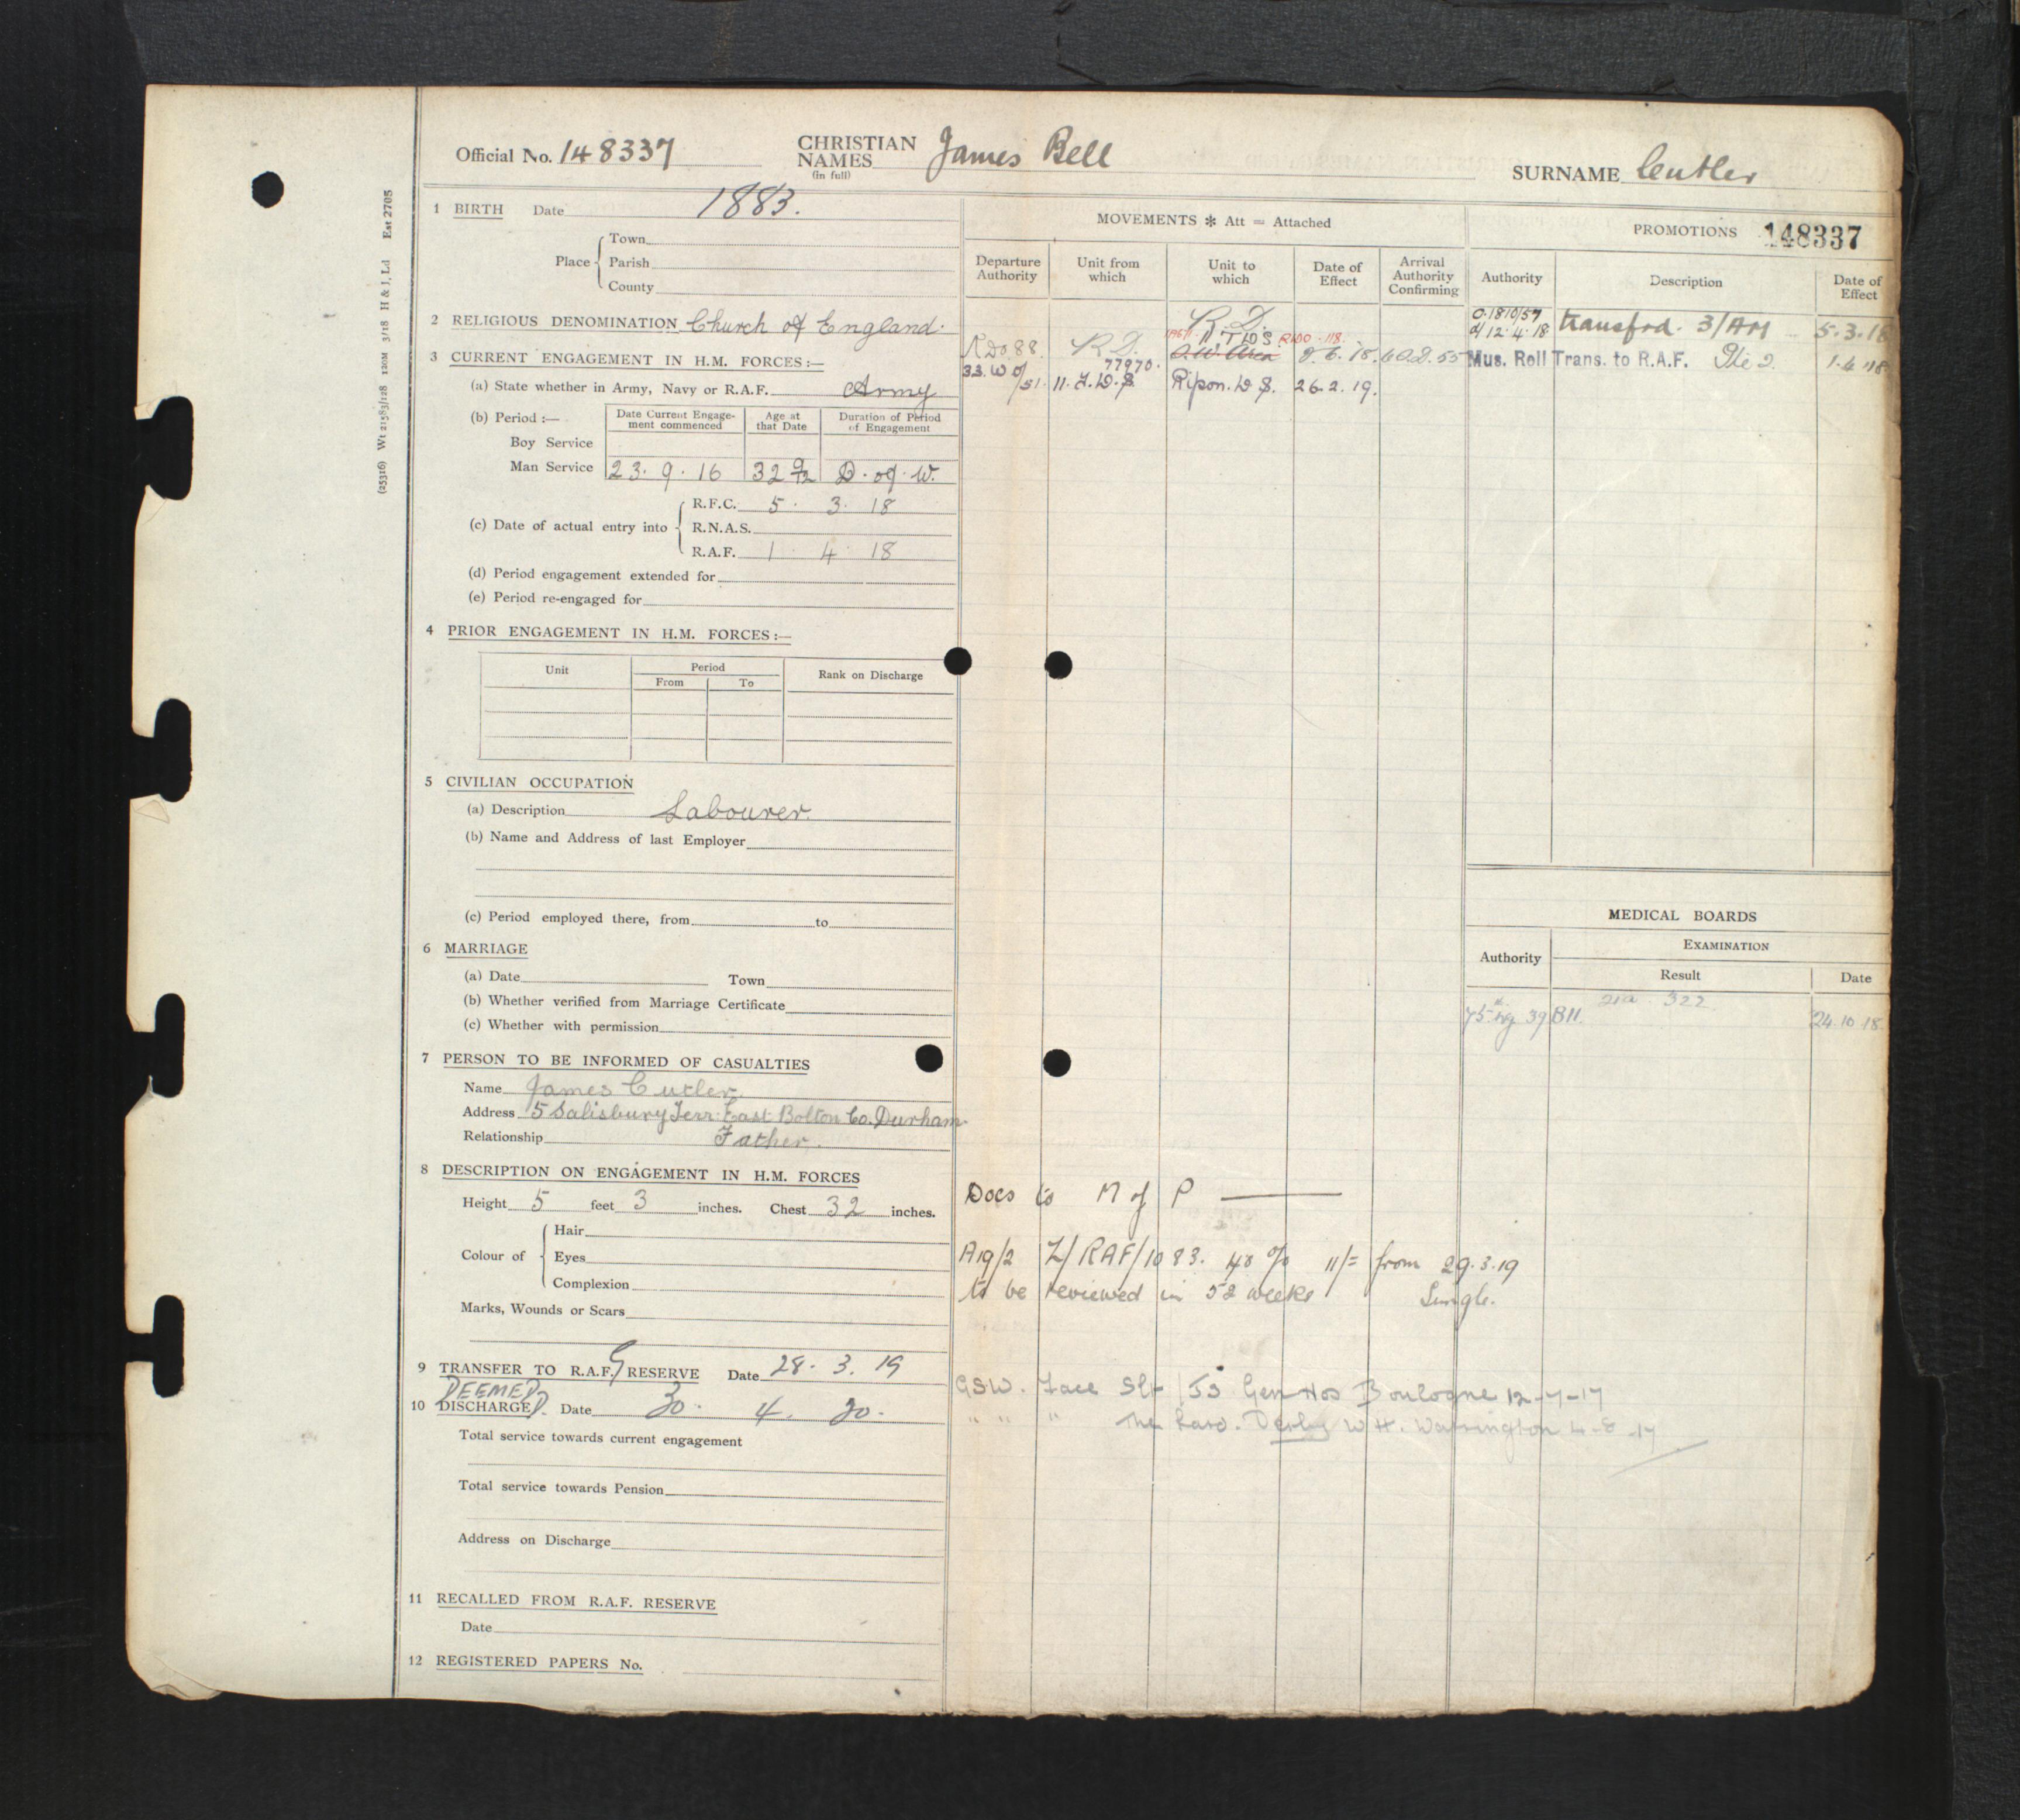 Official No. 148337 CHRISTIAN NAMES (in full) James Bell SURNAME Cutler
(25316) Wt 21583/128 120M 3/18 H & J, Ld Est 2705
1 BIRTH Date 1883.
Place Town
Parish
County
2 RELIGIOUS DENOMINATION Church of England.
3 CURRENT ENGAGEMENT IN H.M. FORCES:—
(a) State whether in Army, Navy or R.A.F. Army
(b) Period :— Date Current Engagement commenced Age at that Date Duration of Period of Engagement
Boy Service
Man Service 23.9.16 32 9/12 D. of W.
(c) Date of actual entry into R.F.C. 5. 3. 18
R.N.A.S.
R.A.F. 1 4 18
(d) Period engagement extended for
(e) Period re-engaged for
4 PRIOR ENGAGEMENT IN H.M. FORCES:—
Unit Period Rank on Discharge
From To
5 CIVILIAN OCCUPATION
(a) Description Labourer.
(b) Name and Address of last Employer
(c) Period employed there, from to
6 MARRIAGE
(a) Date Town
(b) Whether verified from Marriage Certificate
(c) Whether with permission
7 PERSON TO BE INFORMED OF CASUALTIES
Name James Cutler
Address 5 Salisbury Terr. East Bolton Co. Durham
Relationship Father.
8 DESCRIPTION ON ENGAGEMENT IN H.M. FORCES
Height 5 feet 3 inches. Chest 32 inches.
Colour of Hair
Eyes
Complexion
Marks, Wounds or Scars
9 TRANSFER TO R.A.F. G RESERVE Date 28. 3. 19
DEEMED
10 DISCHARGED. Date 30. 4. 20.
Total service towards current engagement
Total service towards Pension
Address on Discharge
11 RECALLED FROM R.A.F. RESERVE
Date
12 REGISTERED PAPERS No.
MOVEMENTS * Att = Attached
Departure Authority Unit from which Unit to which Date of Effect Arrival Authority Confirming
R.D.
11. T D S R100 118.
RDO 88. R.D. O.W. Area 8.6.18.
77970.
33. W D/51. 11. T.D.S. Ripon. D S. 26.2.19.
Docs to M of P
A19/2 Z/RAF/1083. 40% 11/= from 29.3.19
to be reviewed in 52 weeks Single.
GSW. Face Slt 53 Gen Hos Boulogne 12-7-17
" " " The Lord Derby W H. Warrington 4-8-17
PROMOTIONS 148337
Authority Description Date of Effect
O.1810/57
d/12.4.18 transfrd. 3/AM 5.3.18
Mus. Roll Trans. to R.A.F. Pte 2. 1.4.18
MEDICAL BOARDS
Authority EXAMINATION
Result Date
322
BII. 24.10.18